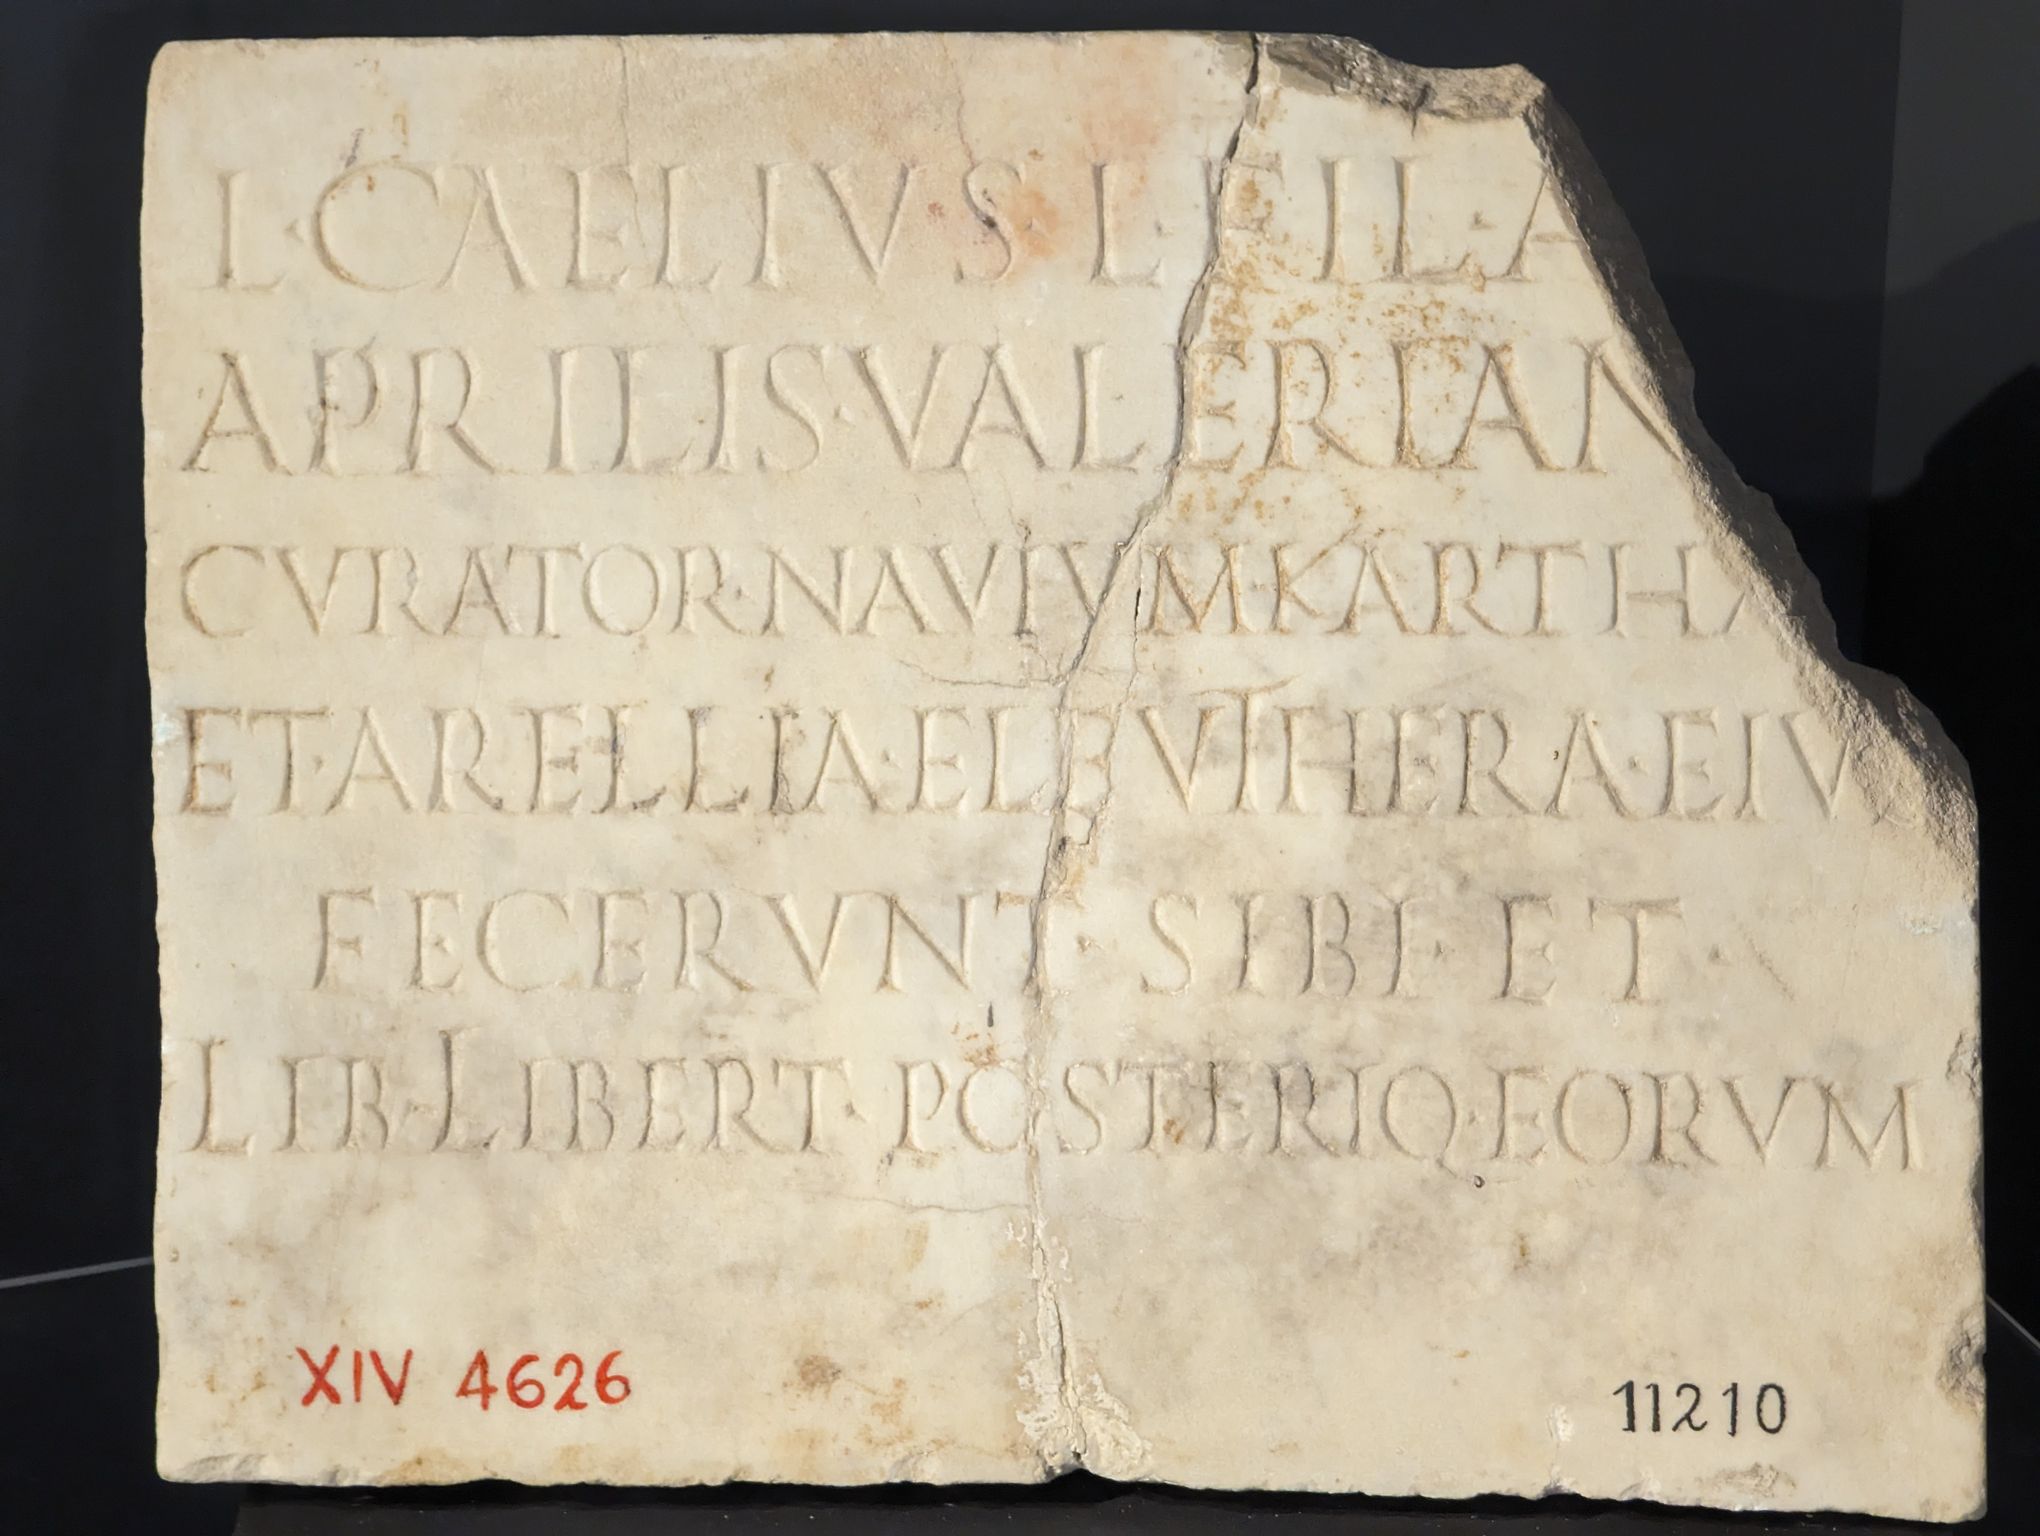 L·CAELIVS·L·FIL·A
APRILIS·VALERIAN
CVRATOR·NAVIVM·KARTHA
ET·ARELLIA·ELEVTHERA·EIVS
FECERVNT·SIBI·ET·
LIB·LIBERT·POSTERIQ·EORVM
XIV 4626
11210